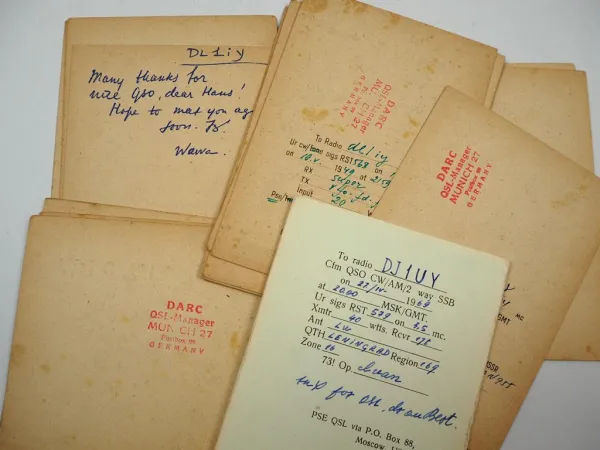 DL1iy
Many thanks for
nice QSO, dear Hans!
Hope to meet you ag
soon. 73.
Wawa.
DARC
QSL-Manager
MUNCH 27
Postbox 99
GERMANY
To Radio dl1iy
Ur cw/ sigs RST 568 on
on 19 49 at
RX
TX Super
Input
20
Pse/
DARC
QSL-Manager
MUNICH 27
Postbox 99
GERMANY
MC
GMT
DARC
QSL-Manager
MUNICH 27
Postbox 99
GERMANY
To radio DJ1UY
Cfm QSO CW/AM/2 way SSB
on 22/IV- 1969
at 2000 MSK/GMT.
Ur sigs RST 579 on 3.5 mc.
Xmtr 40 wtts. Rcvr
Ant LW
QTH LENINGRAD Region 169
Zone 16
73! Op. Ivan
tnx for QSL, dr om Best.
PSE QSL via P.O. Box 88,
Moscow, U